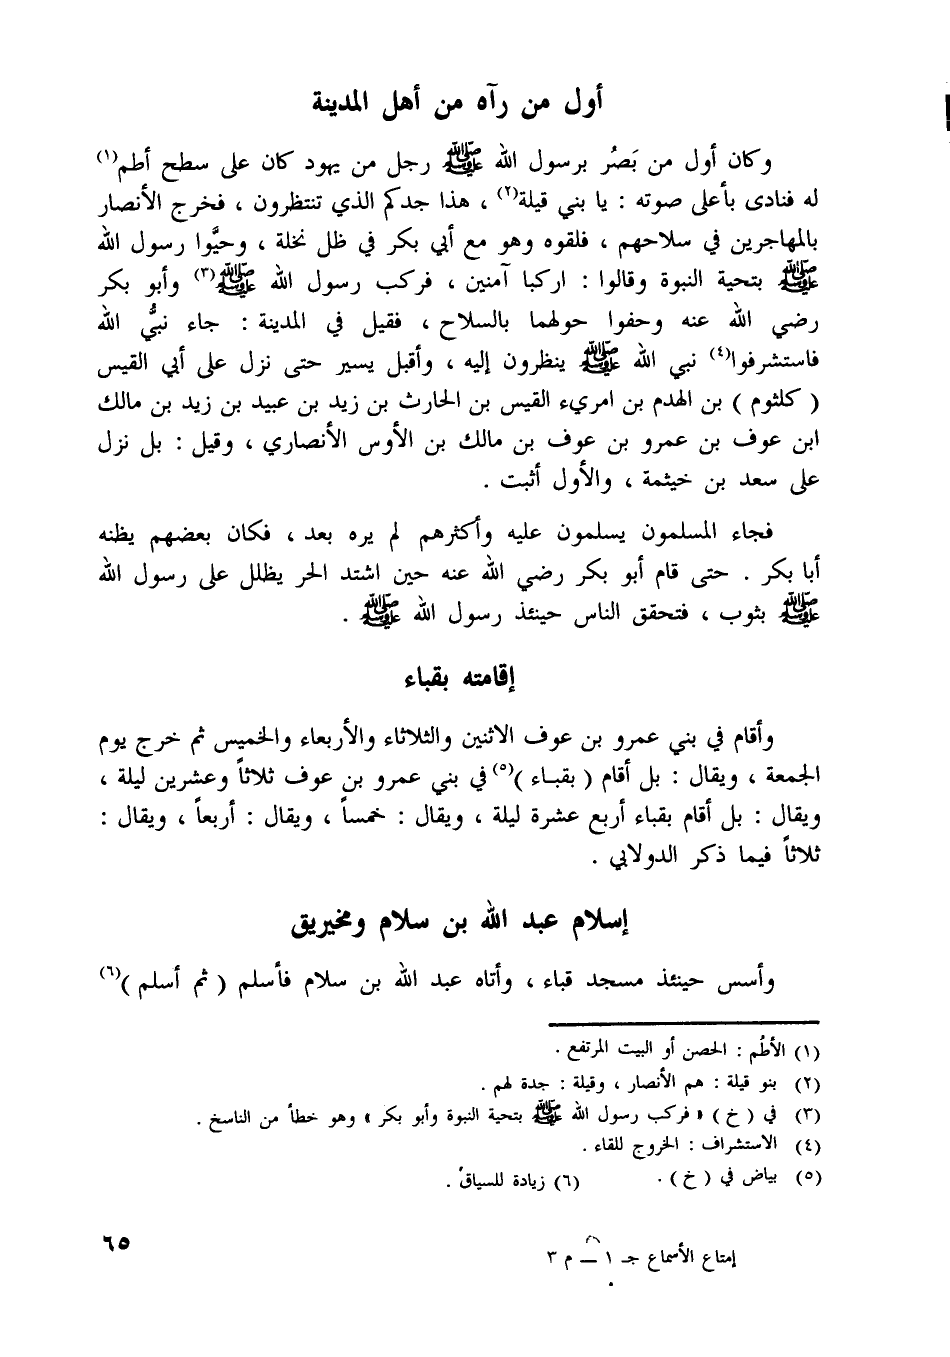 أول من رآه من أهل المدينة
وكان أول من بَصُر برسول الله ﷺ رجل من يهود كان على سطح أطم(١)
له فنادى بأعلى صوته : يا بني قيلة(٢) ، هذا جدكم الذي تنتظرون ، فخرج الأنصار
بالمهاجرين في سلاحهم ، فلقوه وهو مع أبي بكر في ظل نخلة ، وحيَّوا رسول الله
ﷺ بتحية النبوة وقالوا : اركبا آمنين ، فركب رسول الله ﷺ(٣) وأبو بكر
رضي الله عنه وحفوا حولهما بالسلاح ، فقيل في المدينة : جاء نبيُّ الله
فاستشرفوا(٤) نبي الله ﷺ ينظرون إليه ، وأقبل يسير حتى نزل على أبي القيس
( كلثوم ) بن الهدم بن امريء القيس بن الحارث بن زيد بن عبيد بن زيد بن مالك
ابن عوف بن عمرو بن عوف بن مالك بن الأوس الأنصاري ، وقيل : بل نزل
على سعد بن خيثمة ، والأول أثبت .
فجاء المسلمون يسلمون عليه وأكثرهم لم يره بعد ، فكان بعضهم يظنه
أبا بكر . حتى قام أبو بكر رضي الله عنه حين اشتد الحر يظلل على رسول الله
ﷺ بثوب ، فتحقق الناس حينئذ رسول الله ﷺ .
إقامته بقباء
وأقام في بني عمرو بن عوف الاثنين والثلاثاء والأربعاء والخميس ثم خرج يوم
الجمعة ، ويقال : بل أقام ( بقبـاء )(٥) في بني عمرو بن عوف ثلاثاً وعشرين ليلة ،
ويقال : بل أقام بقباء أربع عشرة ليلة ، ويقال : خمساً ، ويقال : أربعاً ، ويقال :
ثلاثاً فيما ذكر الدولابي .
إسلام عبد الله بن سلام ومخيريق
وأسس حينئذ مسجد قباء ، وأتاه عبد الله بن سلام فأسلم ( ثم أسلم )(٦)
(١) الأطُم : الحصن أو البيت المرتفع .
(٢) بنو قيلة : هم الأنصار ، وقيلة : جدة لهم .
(٣) في ( خ ) « فركب رسول الله ﷺ بتحية النبوة وأبو بكر » وهو خطأ من الناسخ .
(٤) الاستشراف : الخروج للقاء .
(٥) بياض في ( خ ) . (٦) زيادة للسياق .
٦٥
إمتاع الأسماع جـ ١ ــ م ٣